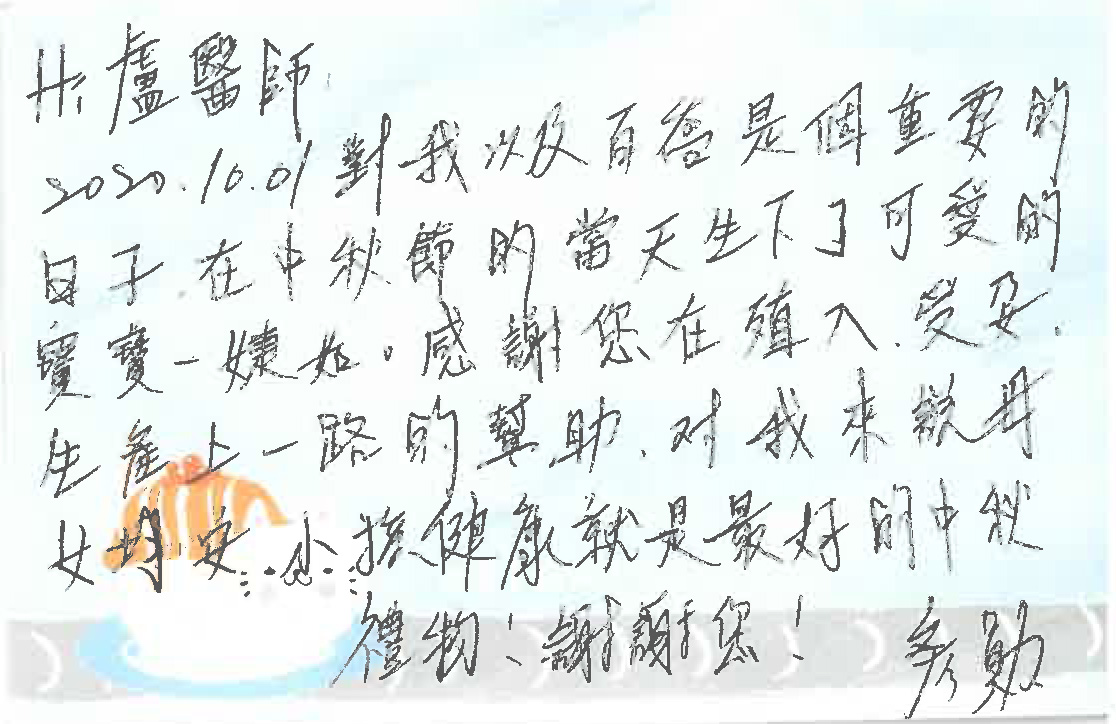 Hi 盧醫師
2020.10.01 對我以及百爸是個重要的
日子.在中秋節的當天生下了可愛的
寶寶-婕如。感謝您在殖入.受孕.
生產上一路的幫助.对我來說母
女均安.小孩健康就是最好的中秋
禮物!謝謝您!
彥勛